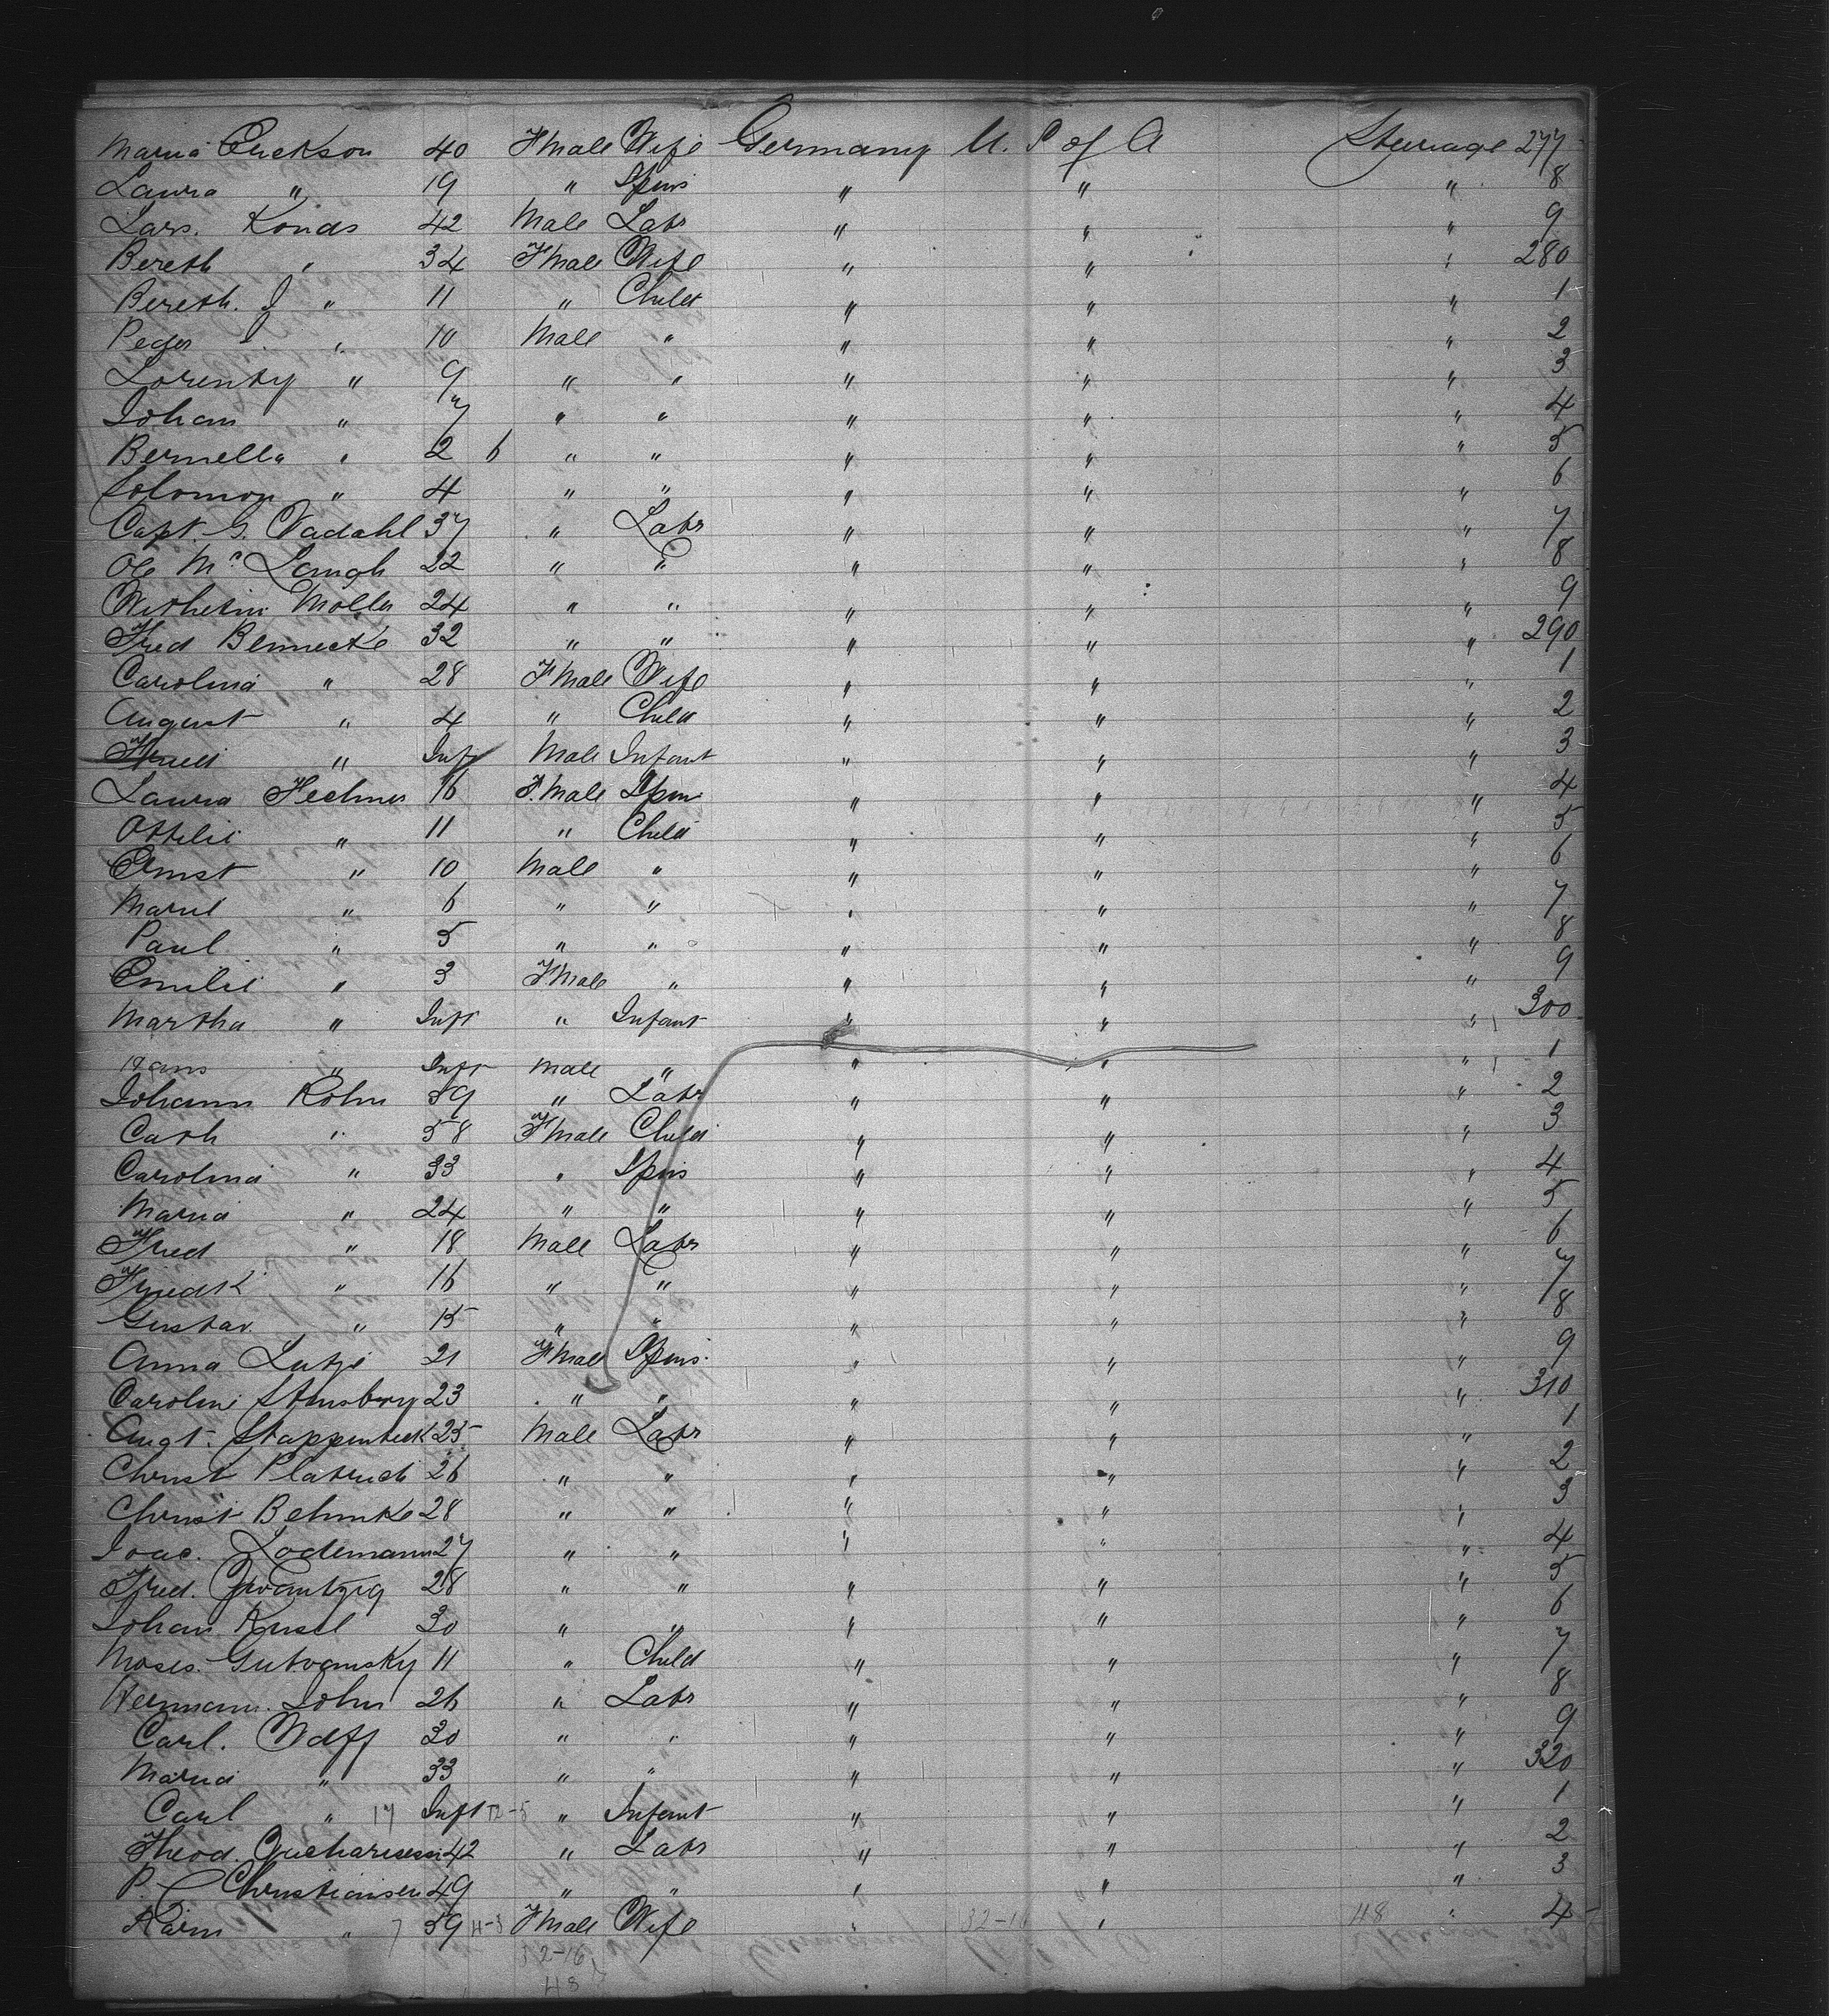 Maria Erickson 40 Fmale Wife Germany U. S of A Steerage 277
Laura " 19 " Spins " " " 8
Lars. Konds 42 Male Labr " " " 9
Bereth " 34 Fmale Wife " " " 280
Bereth. J " 11 " Child " " " 1
Peder J " 10 Male " " " " 2
Lorenty " 9 " " " " " 3
Johan " 7 " " " " " 4
Bernella " 2 6 " " " " " 5
Solomon " 4 " " " " " 6
Capt. G. Vadahl 37 " Labr " " " 7
Ole Mc Laugh 22 " " " " " 8
Wilhelm Moller 24 " " " " " 9
Fred Bennecke 32 " " " " " 290
Carolina " 28 Fmale Wife " " " 1
August " 4 " Child " " " 2
Fried " Inft Male Infant " " " 3
Laura Hechner 16 F.Male Spin " " " 4
Ottilie " 11 " Child " " " 5
Ernst " 10 Male " " " " 6
" 6 " " " " " 7
Paul " 5 " " " " " 8
Emilie " 3 Fmale " " " " 9
Martha " Inft " Infant " " " 300
Hans " Inft Male " " " " 1
Johann Rohn 59 " Labr " " " 2
Cath " 58 Fmale Child " " " 3
Carolina " 33 " Spins " " " 4
Maria " 24 " " " " " 5
Fred " 18 Male Labr " " " 6
Friedk " 16 " " " " " 7
Gustav. " 15 " " " " " 8
Anna Lutje 21 Fmale Spins. " " " 9
Caroline Stinsbury 23 " " " " " 310
Augt. Stappenbeck 25 Male Labr " " " 1
Christ 26 " " " " " 2
Christ Behmke 28 " " " " " 3
Joac. Lodemann 27 " " " " " 4
Fred. 28 " " " " " 5
Johan Kusel 30 " " " " " 6
Moses. Gutvansky 11 " Child " " " 7
Hermann. John 26 " Labr " " " 8
Carl. Wolff 30 " " " " " 9
Maria " 33 " " " " " 320
Carl " 17 Inft 12-5 " Infant " " " 1
Theod. 42 " Labr " " " 2
P. Christiansen 49 " " " " " 3
Karin " 7 59 11-3 Fmale Wife " 32-16 " 48 " 4
32-16
48